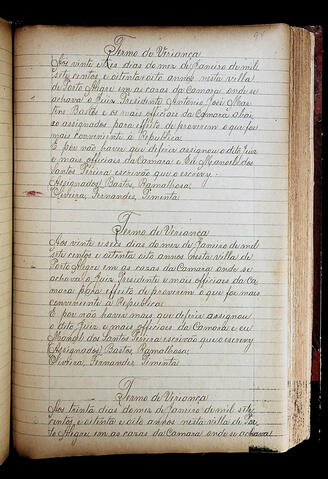 Termo de Veriança
Aos vinte e tres dias do mez de Janeiro de mil
sete centos e oitenta e oito annos nesta villa
de Porto Alegre em as cazas da Camara onde se
achava o Juiz Presidente Antonio José Mar
tins Bastos e os mais officiaes da Camara abai
xo assignados para effeito de proverem o que for
mais conveniente á Republica.
E por não haver que deferir assignou o dito Juiz
e mais officiaes da Camara e Eu Manoel dos
Santos Pereira escrivão que o escrevy.
Assignados Bastos, Ramalhosa,
Oliveira, Fernandes, Pimenta.
Termo de Veriança
Aos vinte e seis dias do mez de Janeiro de mil
sete centos e oitenta e oito annos nesta villa de
Porto Alegre em as cazas da Camara onde se
achava o Juiz Presidente e mais officiaes da Ca
mara para effeito de proverem o que for mais
conveniente á Republica.
E por não haver mais que deferir assignou
o dito Juiz e mais officiaes da Camara e eu
Manoel dos Santos Pereira escrivão que o escrevy
Assignados Bastos, Ramalhosa,
Oliveira, Fernandes, Pimenta.
Termo de Veriança
Aos trinta dias do mez de Janeiro de mil sete
centos, e oitenta e oito annos nesta villa de Por
to Alegre em as cazas da Camara onde se achava